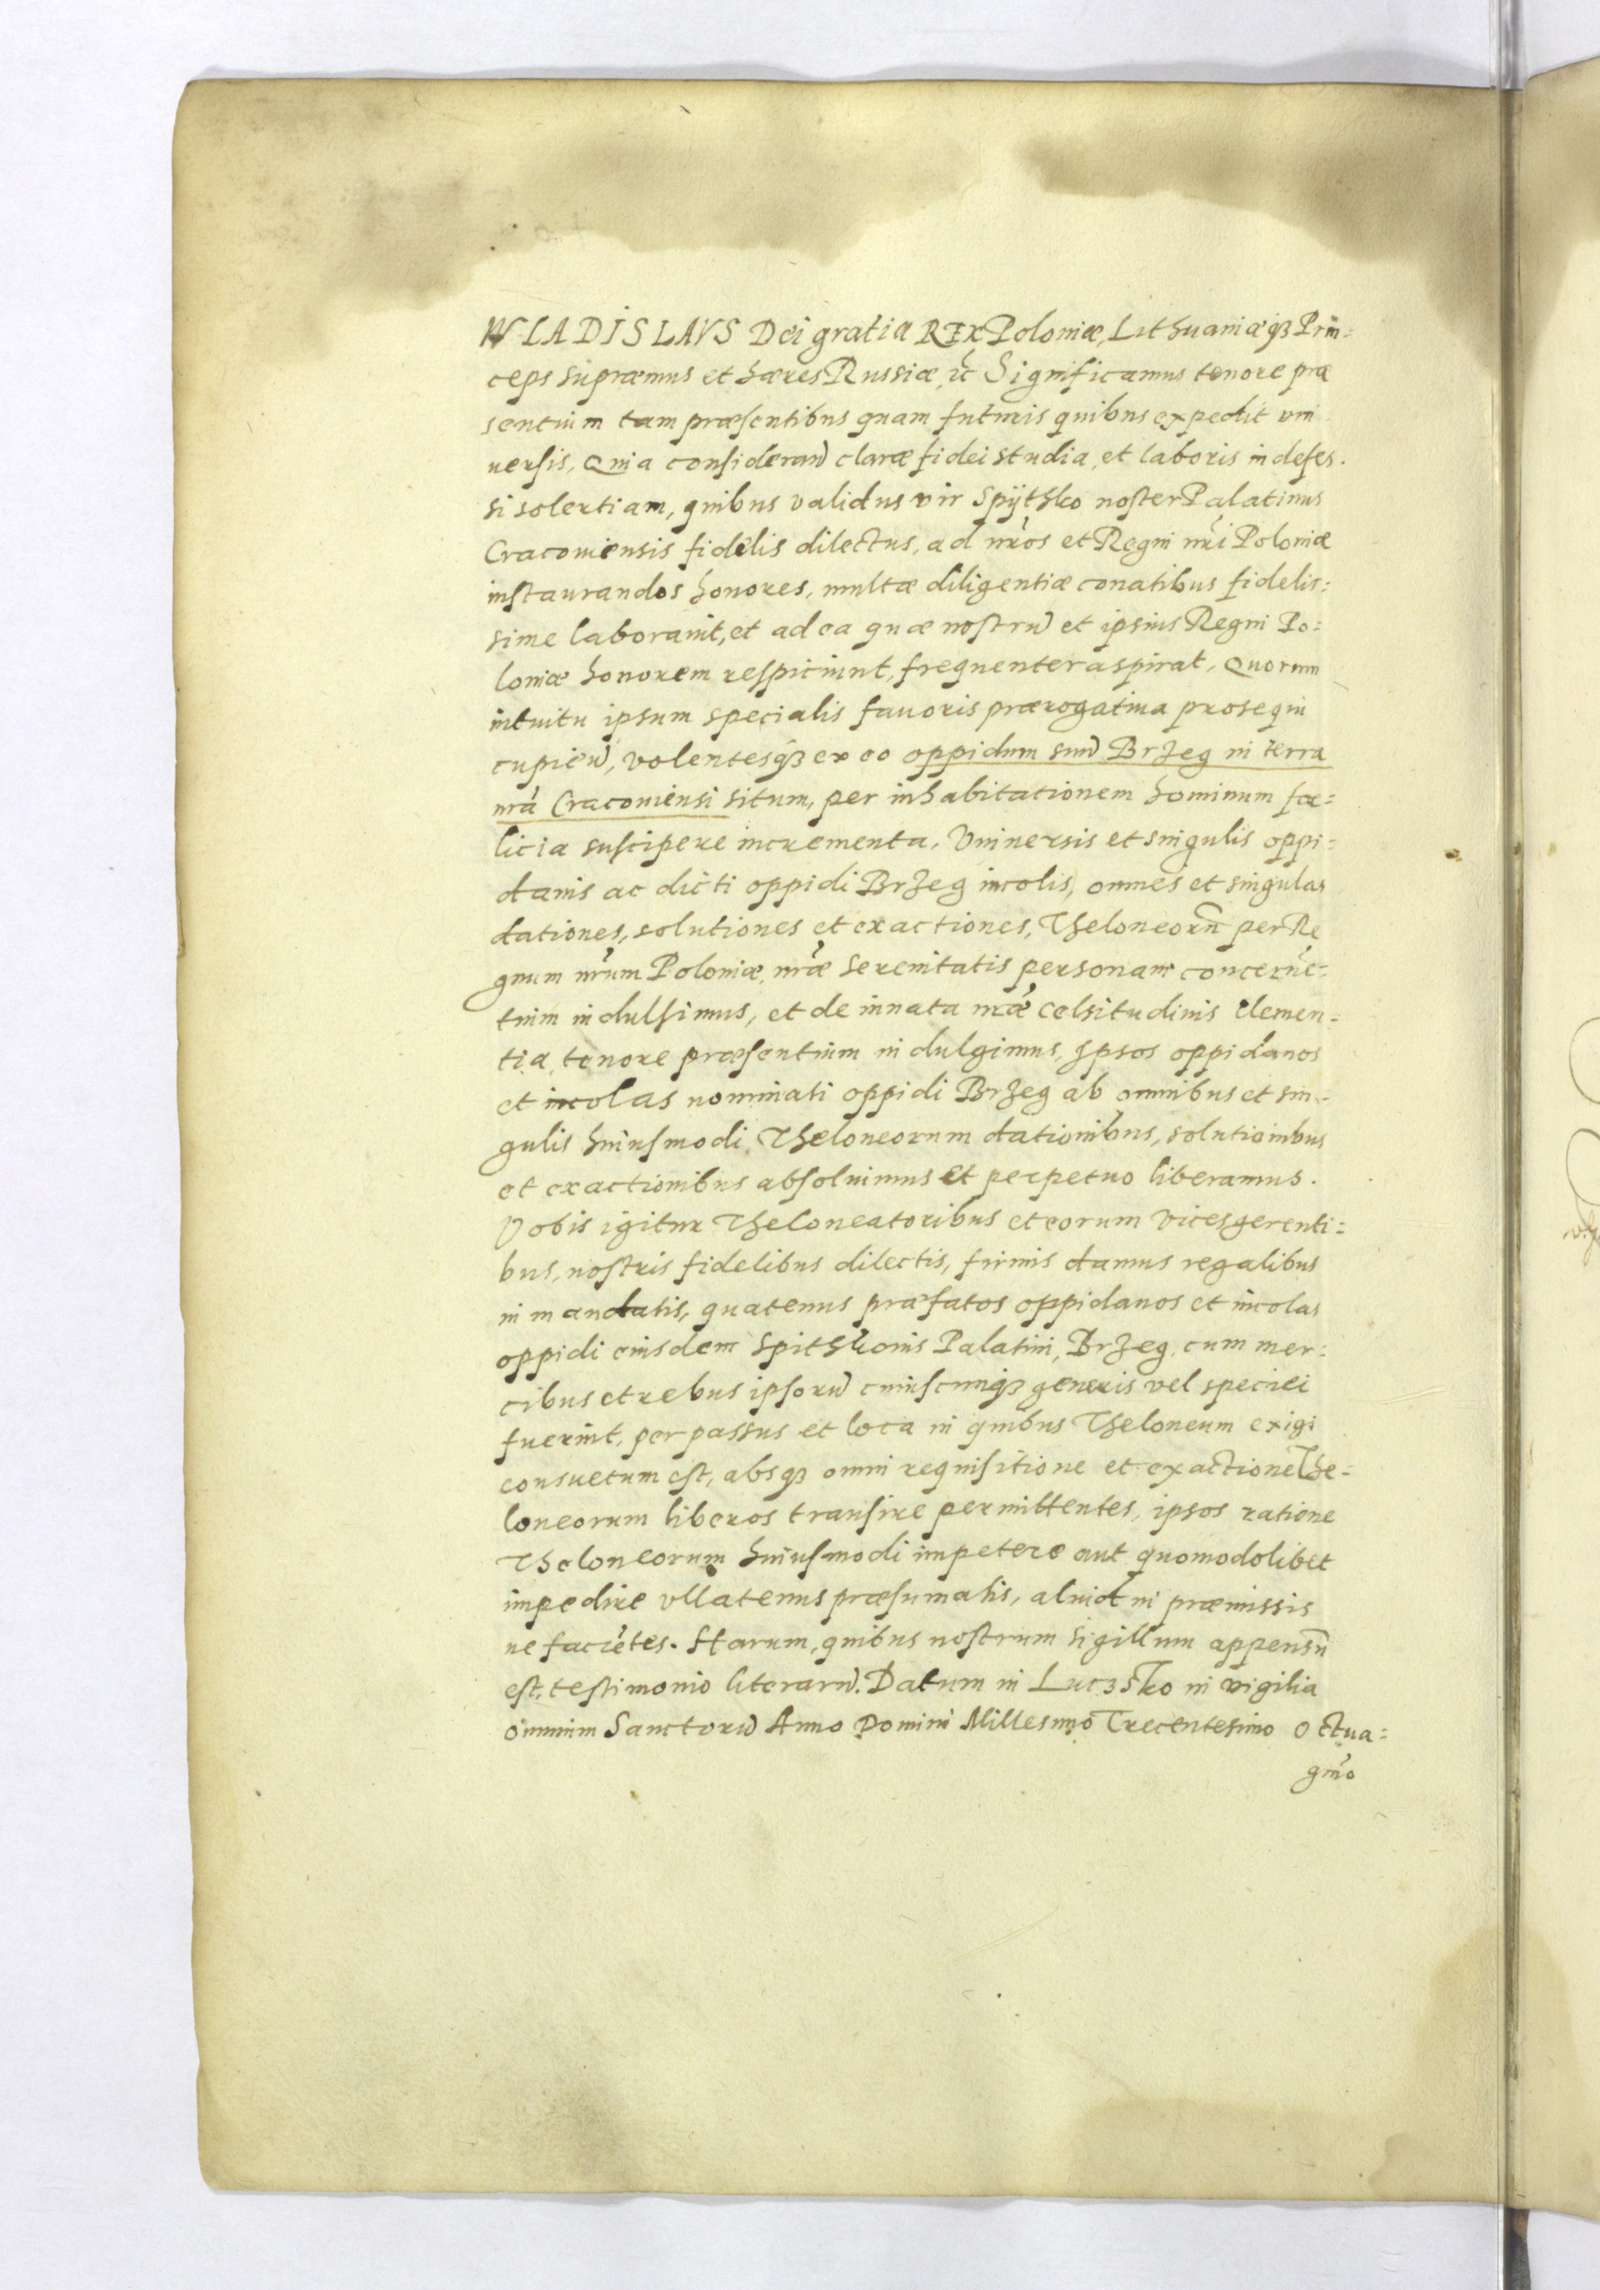 WLADISLAVS Dei gratia REX Poloniæ, Lithuaniæq₃ Prin=
ceps supræmus et hæres Russiæ, ꝛc̃ Significamus tenore præ
sentium tam præsentibus quam futuris quibus expedit vni
uersis, Quia considerañ claræ fidei studia, et laboris indefes.
si solertiam, quibus validus vir Spÿthko noster Palatinus
Cracouiensis fidelis dilectus, ad nr̃os et Regni nr̃i Poloniæ
instaurandos honores, multæ diligentiæ conatibus fidelis:
sime laborauit, et ad ea quæ nostrũ et ipsius Regni Po:
loniæ honorem respiciunt, frequenter aspirat, Quorum
intuitu ipsum specialis fauoris prærogatiua prosequi
cupieñ, volentesq₃ ex eo oppidum suũ Brzeg in terra
nr̃a Cracouiensi situm, per inhabitationem hominum fæ=
licia suscipere incrementa, Vniuersis et singulis oppi=
danis ac dicti oppidi Brzeg incolis, omnes et singulas
dationes, solutiones et exactiones, Theloneorũ per Re
gnum nr̃um Poloniæ, nr̃æ Serenitatis personam concernẽ=
tium indulsimus, et de innata nr̃æ Celsitudinis Clemen=
tia, tenore præsentium indulgimus, Ipsos oppidanos
et incolas nominati oppidi Brzeg ab omnibus et sin=
gulis huiusmodi Theloneorum dationibus, solutionibus
et exactionibus absoluimus et perpetuo liberamus.
Vobis igitur Theloneatoribus et eorum vicesgerenti=
bus, nostris fidelibus dilectis, firmis damus regalibus
in mandatis, quatenus præfatos oppidanos et incolas
oppidi eiusdem Spithkonis Palatini, Brzeg, cum mer=
cibus et rebus ipsorũ cuiuscunq₃ generis vel speciei
fuerint, per passus et loca in quibus Theloneum exigi
consuetum est, absq₃ omni requisitione et exactione The=
loneorum liberos transire permittentes, ipsos ratione
Theloneorum huiusmodi impetere aut quomodolibet
impedire vllatenus præsumatis, aliud in præmissis
ne faciẽtes. Harum, quibus nostrum sigillum appensũ
est, testimonio literarũ. Datum in Luczsko in vigilia
omnium Sanctorũ Anno Domini Millesimo Trecentesimo Octua=
gm̃o